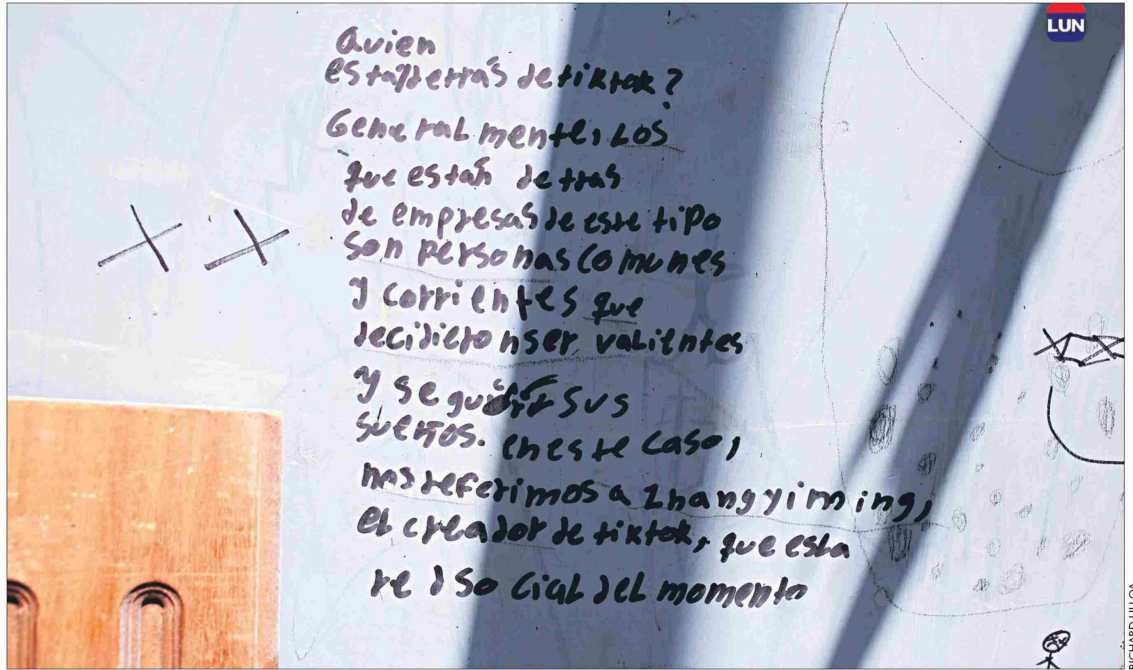 LUN
Quien
está detrás de tiktok?
Generalmente, Los
que están detras
de empresas de este tipo
son personas comunes
y corrientes que
decidieron ser valientes
y seguir sus
sueños. en este caso,
nos referimos a Zhang yiming,
el creador de tiktok, que esta
red social del momento
RICHARD ULLOA